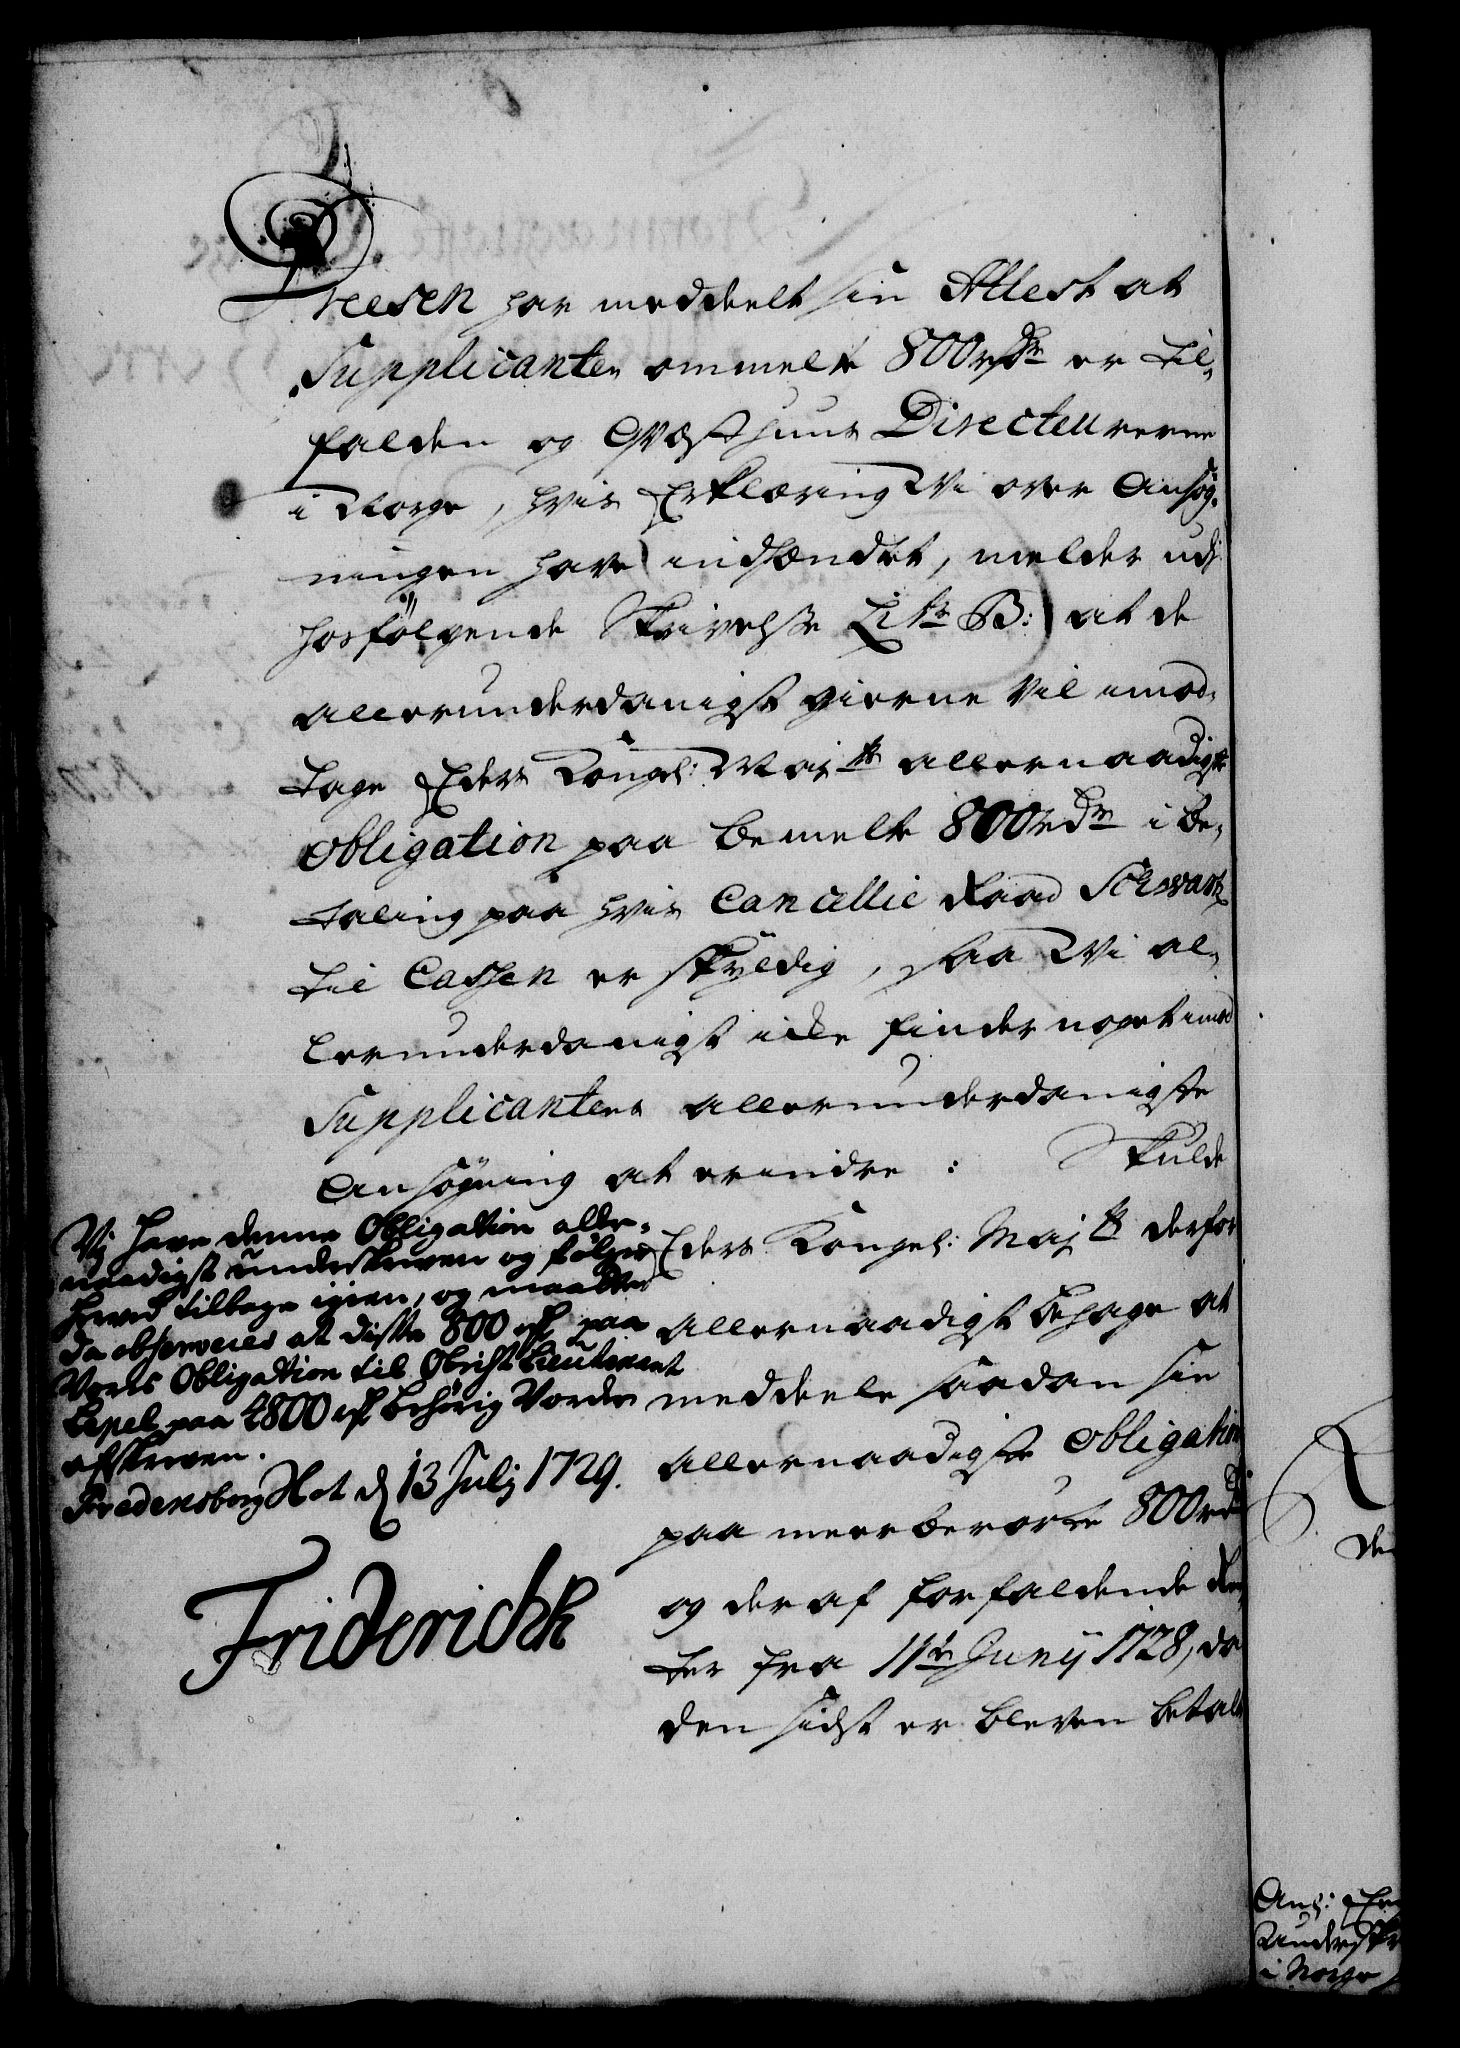 Dreesen har meddeelt sin Attest at
Supplicanten ommelte 800 rdr er til-
falden og Qvæsthuus Directeurerne
i Norge, hvis Erklæring Wi over Ansøg-
ningen have indhændtet, melder udj
hosfølgende Skrivelse Litr B: at de
allerunderdanigst gierne vil imod-
tage Eders Kongel: Mayts allernaadigste
Obligation paa bemelte 800 rdr i be-
taling paa hvis Cancellie Raad Schwartz
til Cassen er skyldig, saa Wi al-
lerunderdanigst icke finder noget imod
Supplicantens allerunderdanigste
Ansøgning at erindre : Skulde
Eders Kongel: Mayts derfor
allernaadigst behage at
meddeele saadan sin
allernaadigste Obligation
paa meerberørte 800 rdr
og deraf forfaldende Ren-
ter fra 11te Junij 1728, da
den sidst er bleven betalt
Vj have denne Obligation aller-
naadigst underskreven og følger
herved tilbage igien, og maa der
da observeres at diste 800 rdr paa
Vores Obligation til Obrist Lieutenant
Lepel paa 4800 rdr behörig vorder
afskreven.
Fredensborg Slot d 13 Julj 1729.
Friderich R
de
Ans:
Underskr
i Norge